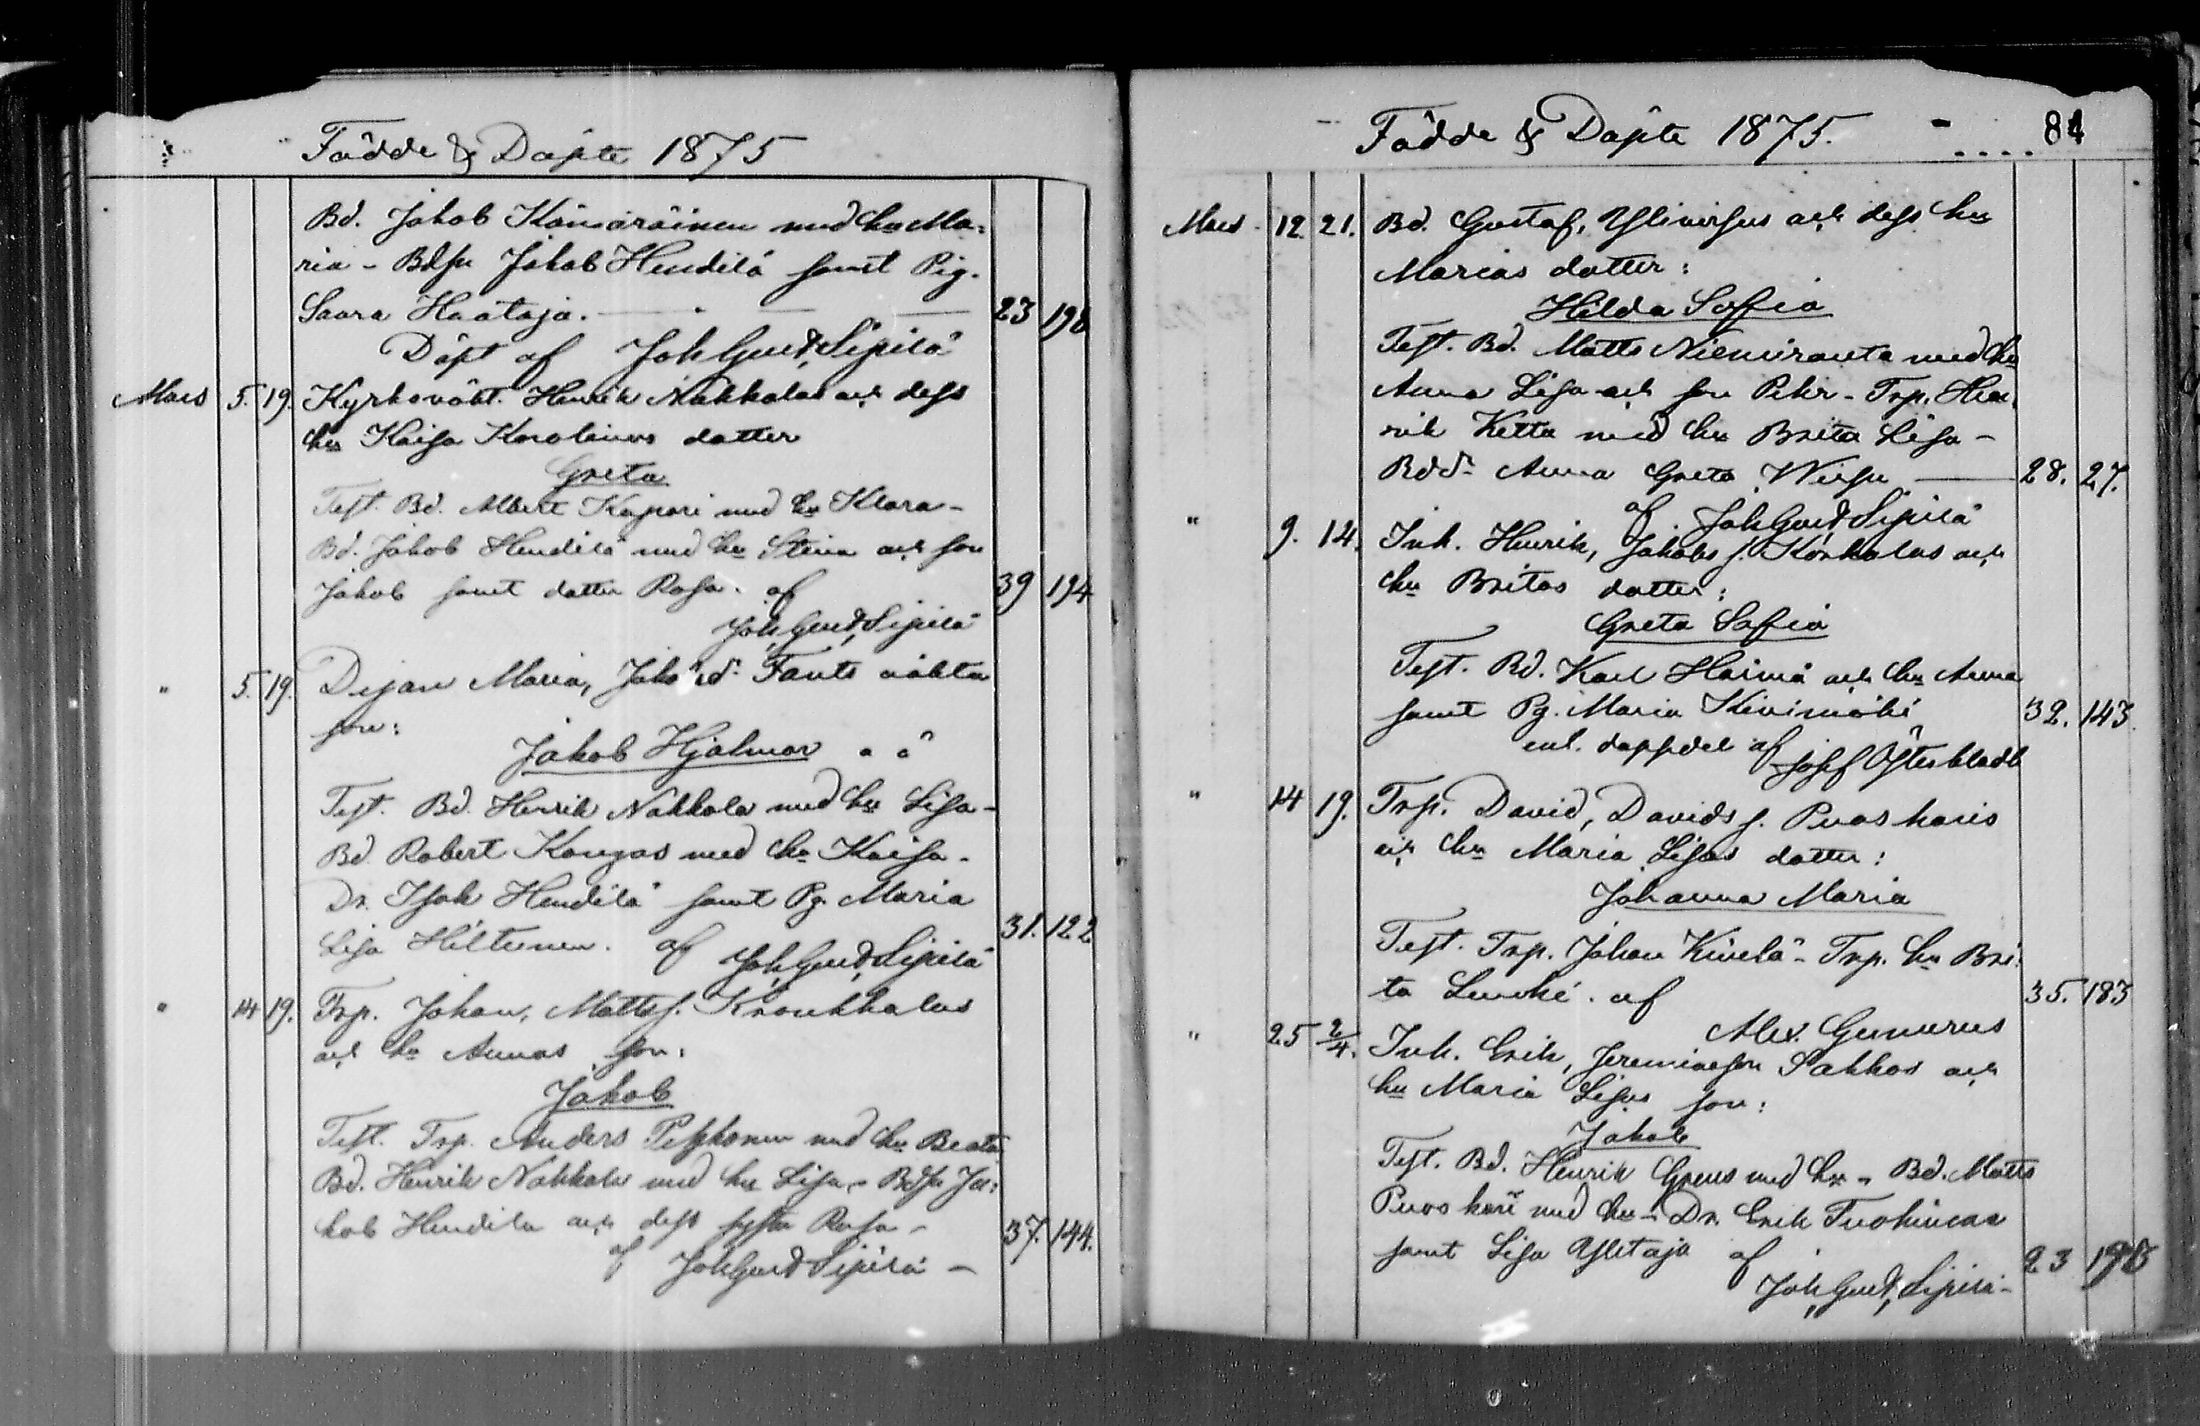 Födde & Döpte 1875
Bd. Jakob Kämäräinen med hu Ma-
ria - Bdsn Jakob Hendilä samt Pig.
Saara Haataja. 23 198
Döpt af Joh Gust, Sipilä
Mars 5. 19. Kyrkovákt. Henrik Nahkalas och dess
hu Kaisa Karolinas dotter
Greta
Test. Bd. Albert Kapari med hu Klara -
Bd. Jakob Hendilä med hu Stina och son
Jakob samt dotter Rosa. af 39 194
Joh, Gust, Sipilä
" 5. 19. Dejan Maria, Jak d. Fants oäkta
son:
Jakob Hjalmar
Test. Bd. Henrik Nahkala med hu Lisa -
Bd. Robert Kangas med hu Kaisa -
Dr. Isak Hendilä samt Pg. Maria
Lisa Hiltunen. af 31. 122
Joh, Gust, Sipilä
" 14 19. Trp. Johan, Matts s. Kronkkalas
och hu Annas son:
Jakob
Test. Trp. Anders Peskonen med hu Beata
Bd. Henrik Nahkala med hu Lisa - Bdsn Ja-
kob Hendilä och dess syster Rosa - 37. 144.
af Joh Gust Sipilä -
Födde & Döpte 1875. 84
Mars 12. 21. Bd. Gustaf, Ylivirsus och dess hu
Marias dotter:
Hilda Soffia
Test. Bd. Matts Niemiranta med hu
Anna Lisa och son Petr - Trp. Hen-
rik Ketta med hu Brita Lisa -
Bdd. Anna Greta Wirsu 28. 27.
af Joh Gust, Sipilä
" 9. 14. Inh. Henrik, Jakobs s. Korkalas och
hu Britas dotter:
Greta Safia
Test. Bd. Karl Haimä och hu Anna
samt Pg. Maria Kivimäki 32. 143.
enl. doppedel af Josef Österbladh
" 14 19. Trp. David, Davids s. Puoskaris
och hu Maria Lisas dotter:
Johanna Maria
Test. Trp. Johan Kivelä - Trp. hu Bri-
ta . af 35. 183
Alex. Gummerus
" 25 2/4. Inh. Erik, Jeremiasson Sakkos och
hu Maria Lisas son:
Jakob
Test. Bd. Henrik med hu - Bd. Matts
Puoskari med hu - Dr. Erik Tuohimaa
samt Lisa Ylitaja af 23 198
Joh, Gust, Sipilä -